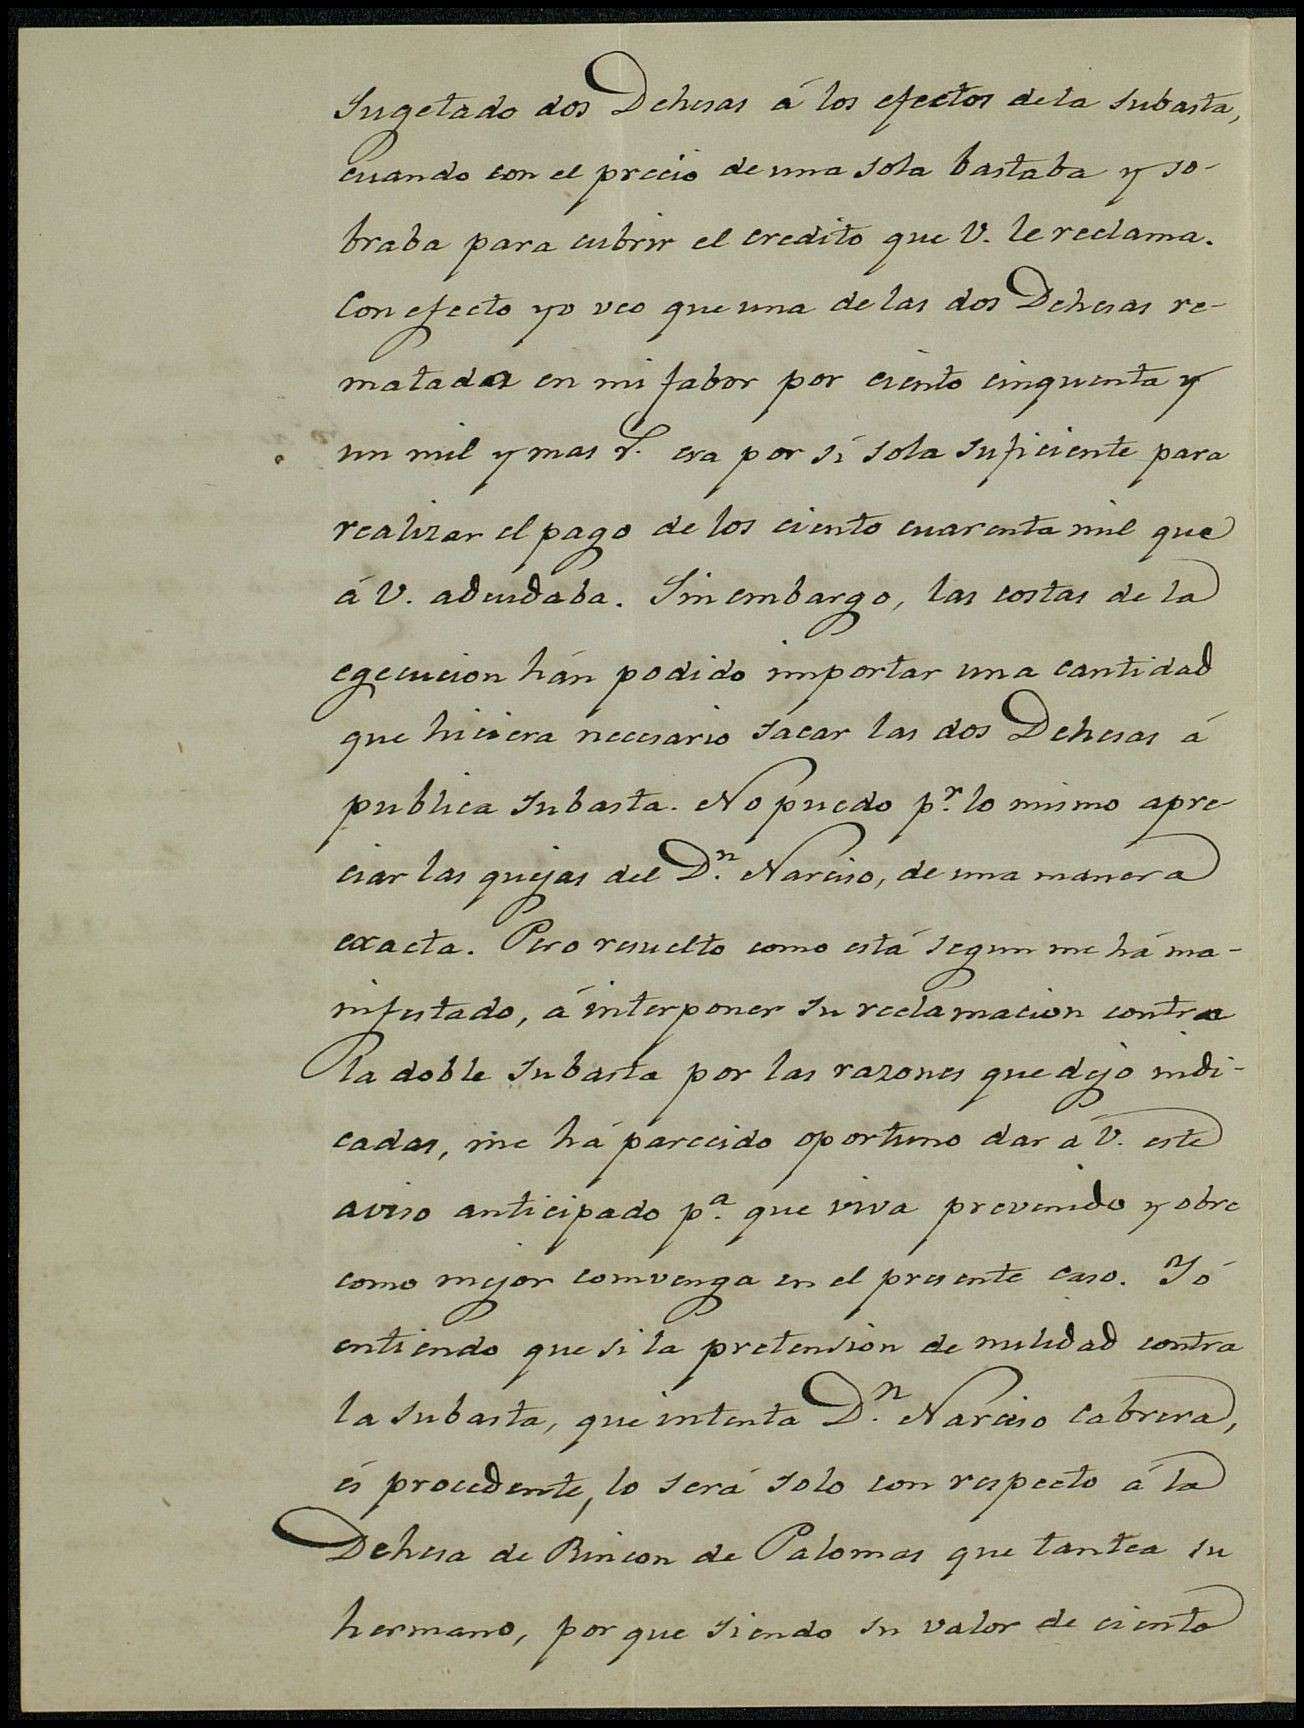 Sugetado dos Dehesas á los efectos de la subasta,
cuando con el precio de una sola bastaba y so-
braba para cubrir el credito que V. le reclama.
Con efecto yo veo que una de las dos Dehesas re-
matadas en mi fabor por ciento cinquenta y
un mil y mas r.^s era por sí sola suficiente para
realizar el pago de los ciento cuarenta mil que
á V. adeudaba. Sin embargo, las costas de la
egecucion hán podido importar una cantidad
que hiciera necesario sacar las dos Dehesas á
publica subasta. No puedo p.^r lo mismo apre-
ciar las quejas del D.^n Narciso, de una manera
exacta. Pero resuelto como está segun me há ma-
nifestado, á interponer su reclamacion contra
la doble subasta por las razones que dejo indi-
cadas, me há parecido oportuno dar á V. este
aviso anticipado p.^a que viva prevenido y obre
como mejor comvenga en el presente caso. Yó
entiendo que si la pretension de nulidad contra
la subasta, que intenta D.^n Narciso Cabrera,
és procedente, lo será solo con respecto á la
Dehesa de Rincon de Palomas que tantea su
hermano, por que siendo su valor de ciento